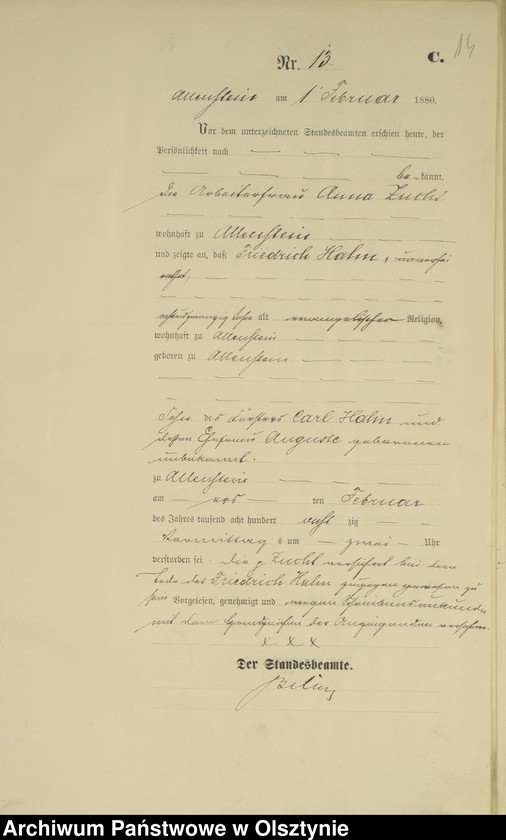 14
C.
Nr. 13
Allenstein am 1 Februar 1880.
Vor dem unterzeichneten Standesbeamten erschien heute, der
Persönlichkeit nach
be kannt,
die Arbeiterfrau Anna Zucht
wohnhaft zu Allenstein
und zeigte an, daß Friedrich Hahn, unverhei
rathet,
achtundzwanzig Jahre alt evangelischer Religion,
wohnhaft zu Allenstein
geboren zu Allenstein
Sohn des Försters Carl Hahn und
dessen Ehefrau Auguste geborenen
unbekannt.
zu Allenstein
am ers ten Februar
des Jahres tausend acht hundert acht zig
Vormittags um zwei Uhr
verstorben sei. Die p Zucht versichert bei dem
Tode des Friedrich Hahn zugegen gewesen zu
sein Vorgelesen, genehmigt und wegen Schreibensunkunde
mit dem Handzeichen der Anzeigenden versehen.
x x x
Der Standesbeamte.
Archiwum Państwowe w Olsztynie